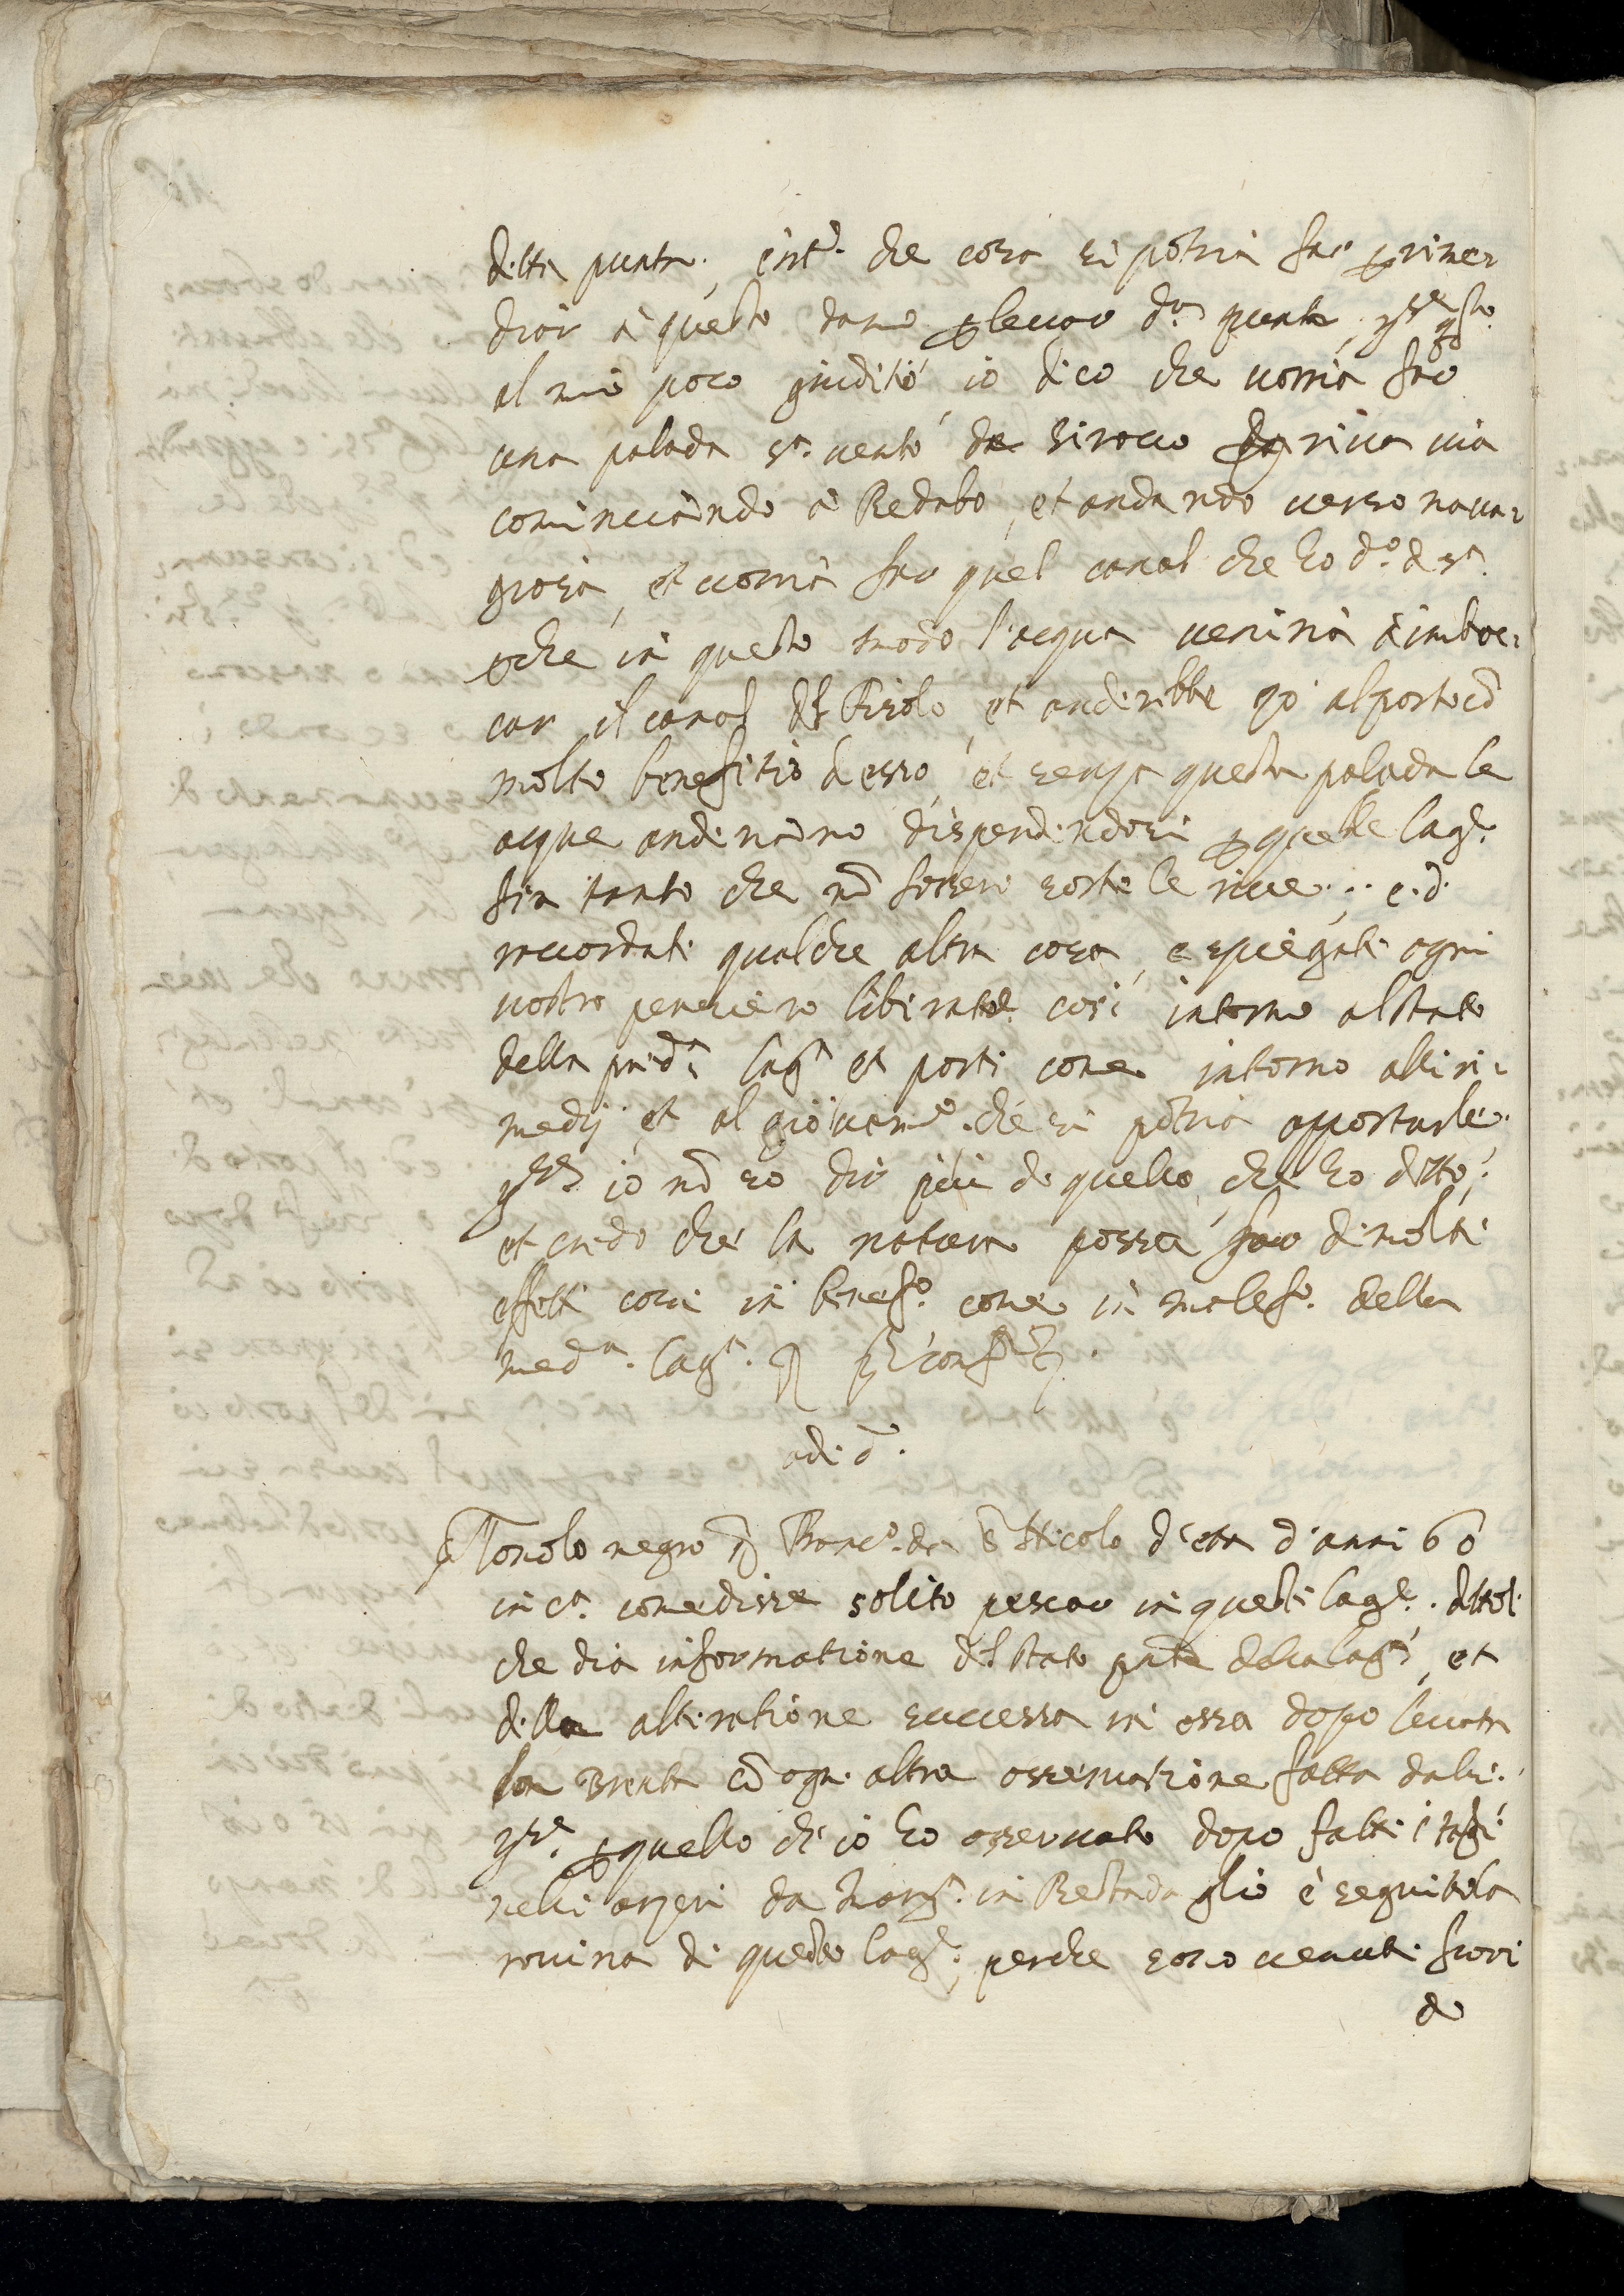 detta punta, int.º che cosa si potria far p rime=
diar à questo danno p levar d.ª punta, r.se q.sto
al mio poco giuditio io dico che vorria far
una palada s.ª vento da sirocco da riva via
cominciando à Redabo, et andando verso nava=
giosa, et vorria far quel canal che ho d.º de s.ª
pche in questo modo l'acqua veniria à imboc=
car il canal del Fisolo, et anderebbe zo al porto cõ
molto benefitio d esso, et senza questa palada le
acque anderiano dispendendosi p quelle lag.e
sin tanto che nõ fossero sorte le rive. e. d.
raccordati qualche altra cosa, e spiegati ogni
vostro pensiero liberam.te così intorno al stato
della pred.ª lag.ª et porti come intorno alli ri=
medij et al giovam.to che si potria apportarle.
r.se io nõ so dir più de quello, che ho ditto,
et credo che la natura possa far di molti
effetti così in benef.º come in malef.º della
med.ª lag.ª
adi d.º
Tonolo negro q Franc.º da S Nicolo d'età d'anni 60
in c.ª come disse solito pescar in queste lag.e. dettoli
che dia informatione del stato pñte della lag.ª, et
della alteratione successa in essa dopo levata
la Brenta cõ ogni altra osservatione fatta da lui.
r.se p quello ch'io ho osservato dopo fatti i tagi
nelli arzeri da Marg.ª in Restada glie è seguita la
rovina di queste lag.e, perche sono venuti fuori
de